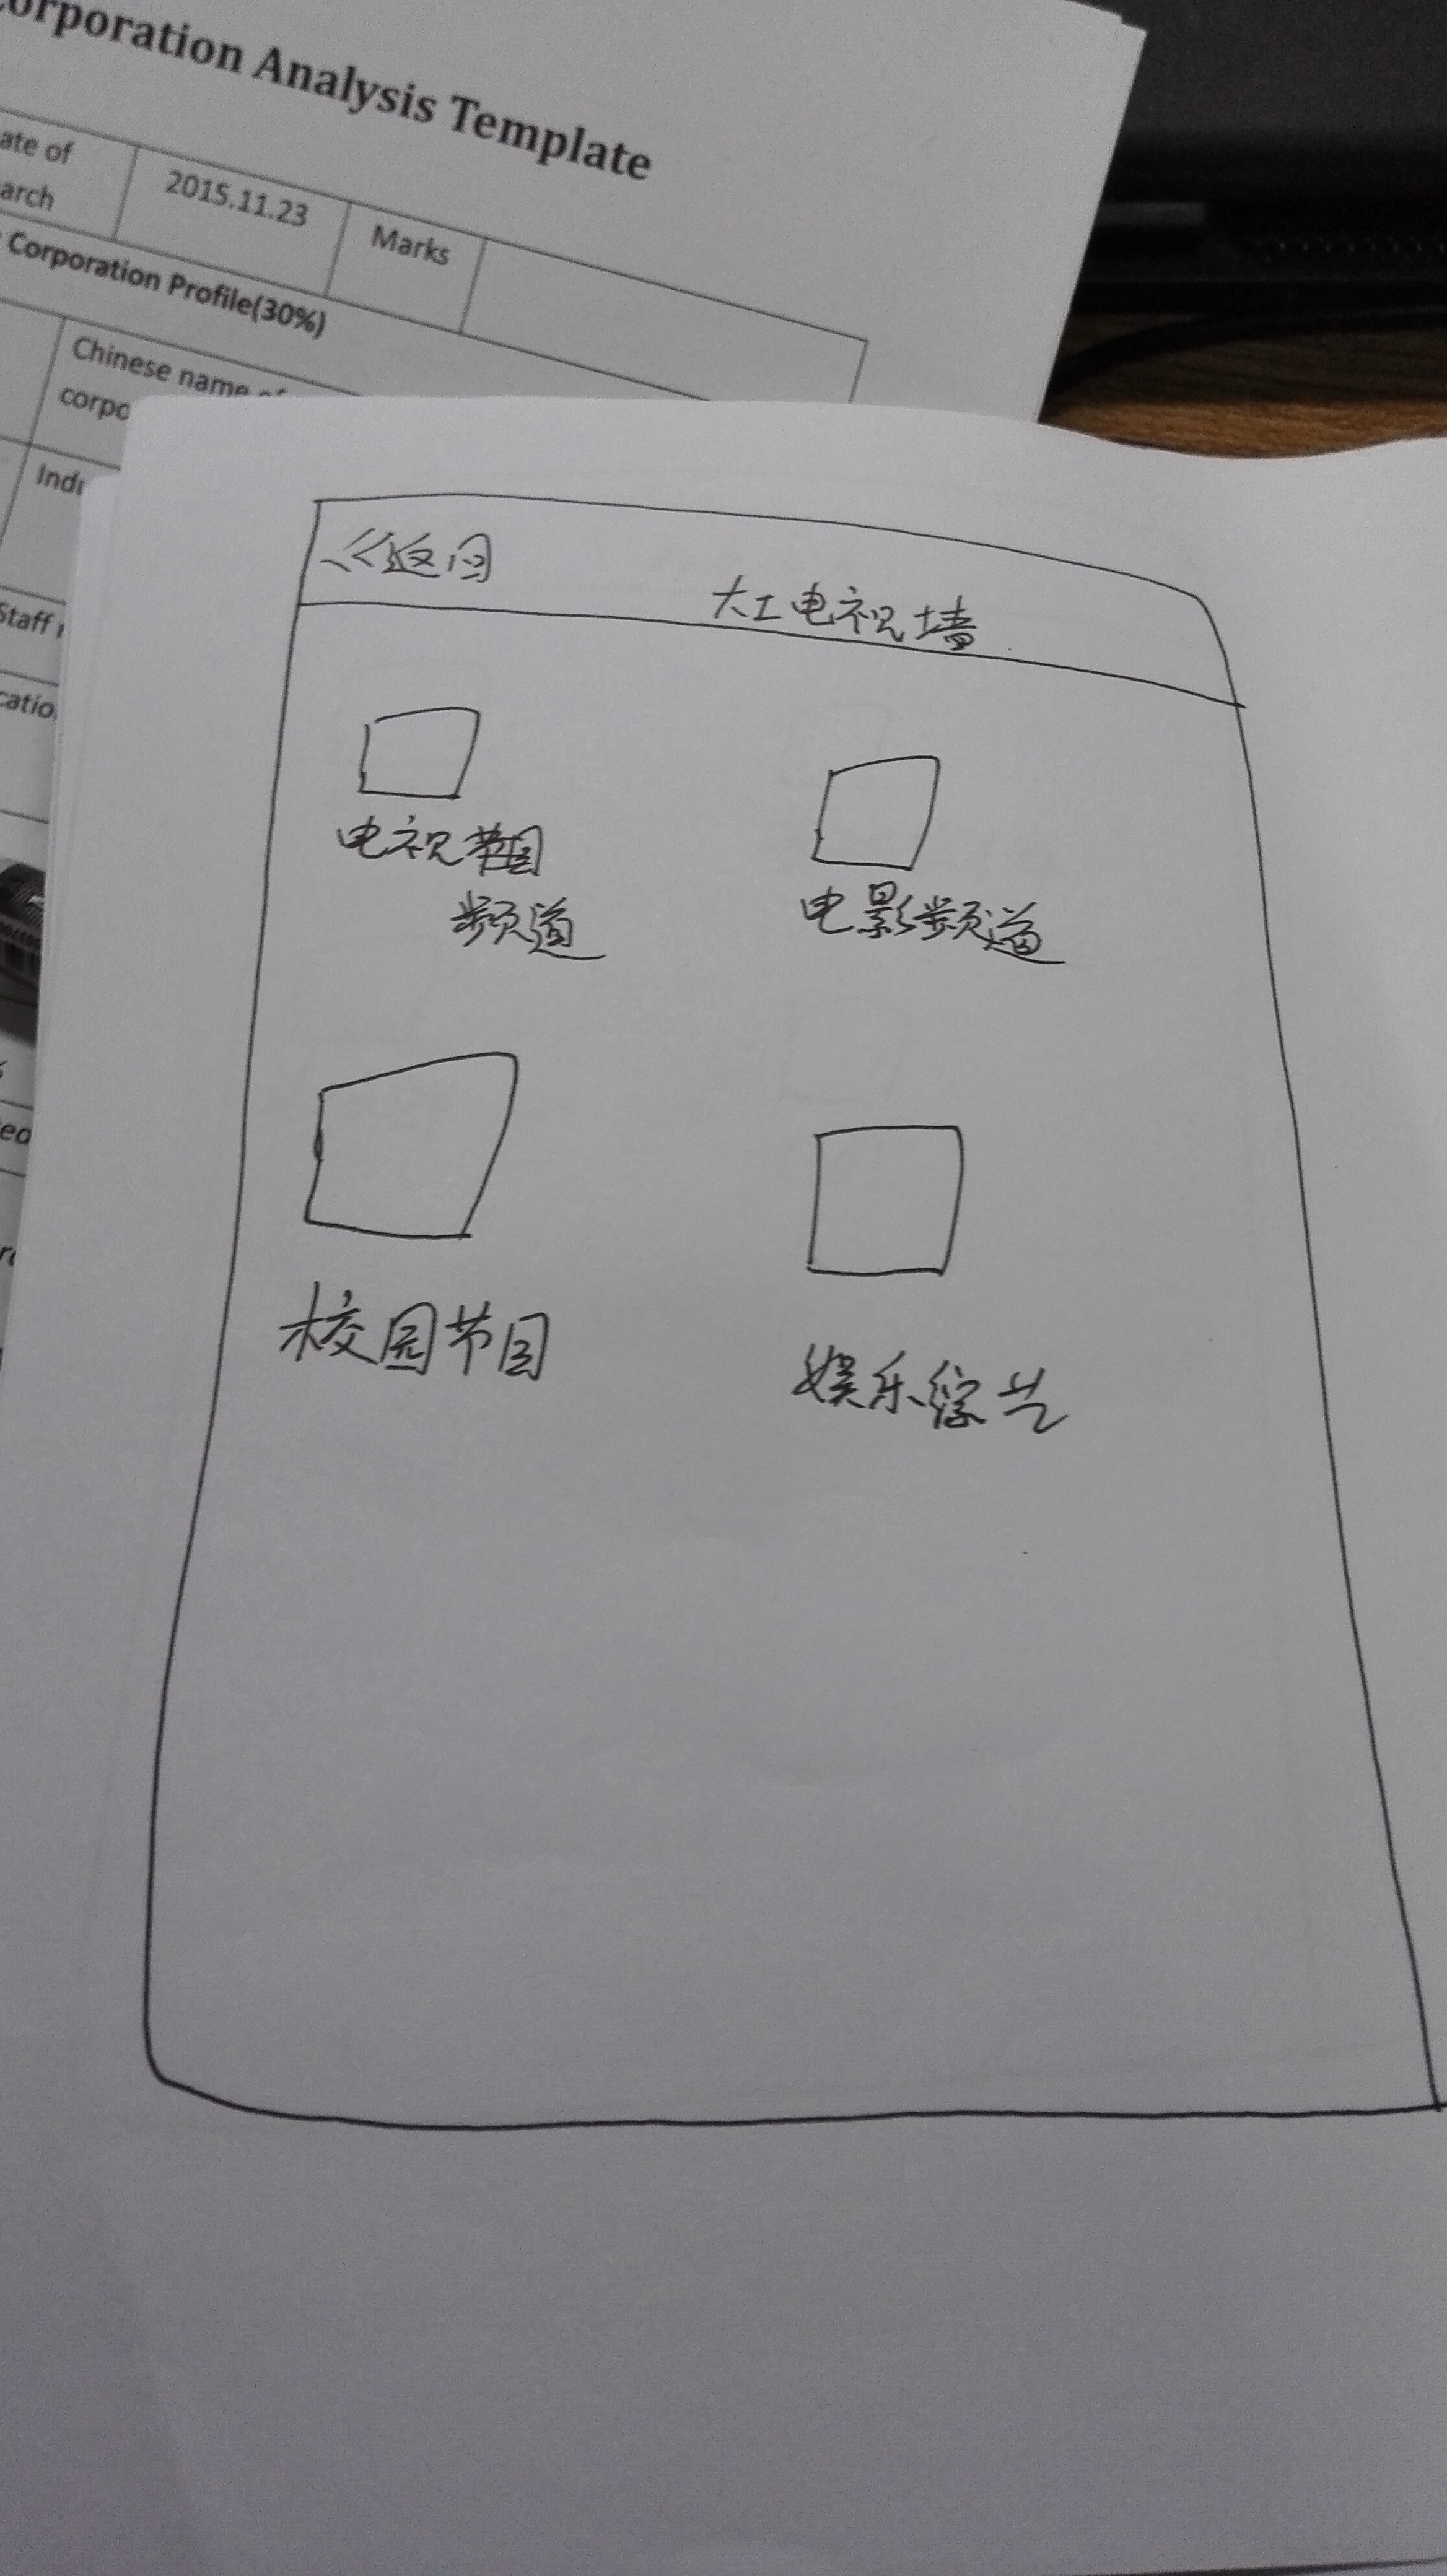 orporation Analysis Template
ate of
arch
2015.11.23
Marks
Corporation Profile(30%)
Chinese name of
corpo
Indu
Staff
catio
<<返回
大工电视墙
电视
频道
电影频道
校园节目
娱乐综艺